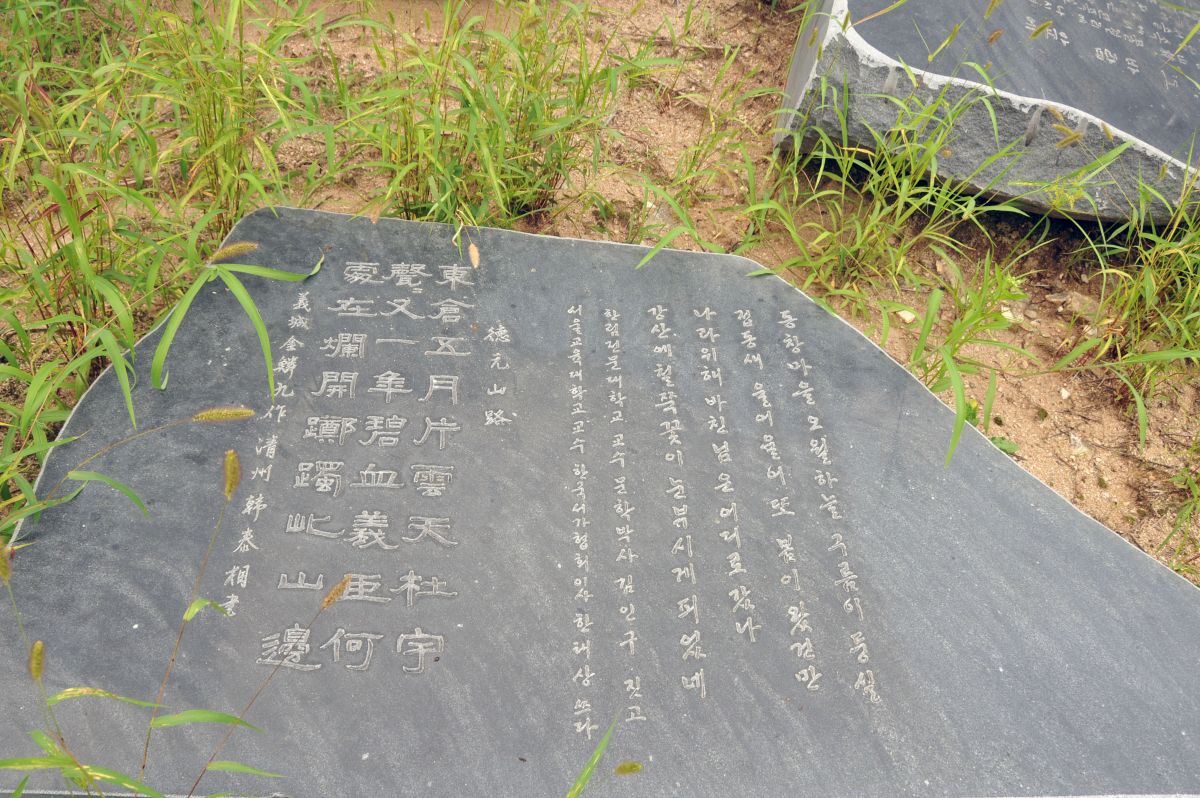 동창마을 오월하늘 구름이 둥실
접동새 울어울어 또 봄이 왔건만
나라위해 바친 님은 어디로 갔나
강산에 철쭉꽃이 눈부시게 피었네
한림전문대학교 교수 문학박사 김인구 짓고
서울교육대학교 교수 한국서가협회 이사 한태상 쓰다
德元山路
東倉五月片雲天杜宇
聲又一年碧血義臣何
處在爛開躑躅此山邊
義城金麟九作 清州韓泰相書